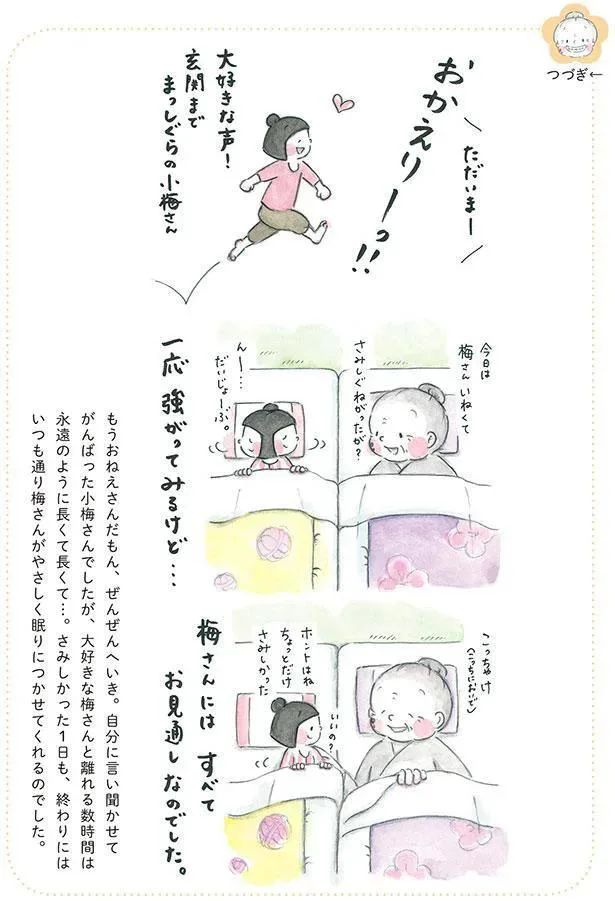 つづき←
ただいまー
おかえりーっ!!
大好きな声！
玄関まで
まっしぐらの小梅さん
今日は
梅さんいねくて
さみしぐねがったが？
んー…
だいじょーぶ。
一応 強がってみるけど…
こっちゃけ
(こっちにおいで)
いいの？
ホントはね
ちょっとだけ
さみしかった
梅さんには すべて
お見通しなのでした。
もうおねえさんだもん、ぜんぜんへいき。自分に言い聞かせて
がんばった小梅さんでしたが、大好きな梅さんと離れる数時間は
永遠のように長くて長くて…。さみしかった1日も、終わりには
いつも通り梅さんがやさしく眠りにつかせてくれるのでした。